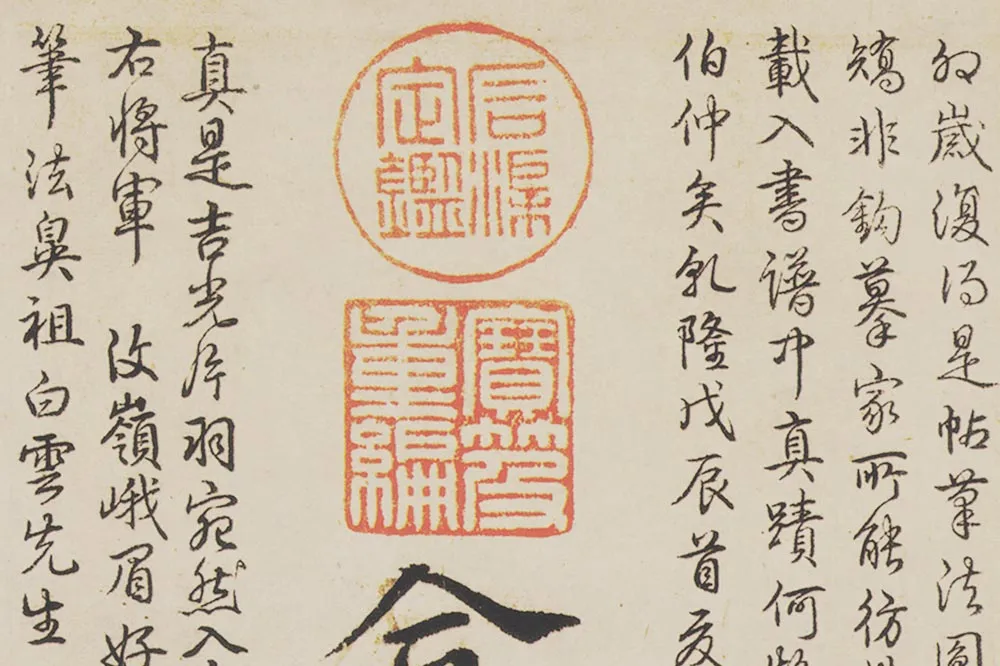 卯歲復得是帖筆法圓
矯非鈎摹家所能彷
載入書譜中真蹟何
伯仲矣乾隆戊辰首夏
石渠
定鑑
寶笈
重編
真是吉光片羽宛然入
右將軍 汶嶺峨眉好
筆法鼻祖白雲先生